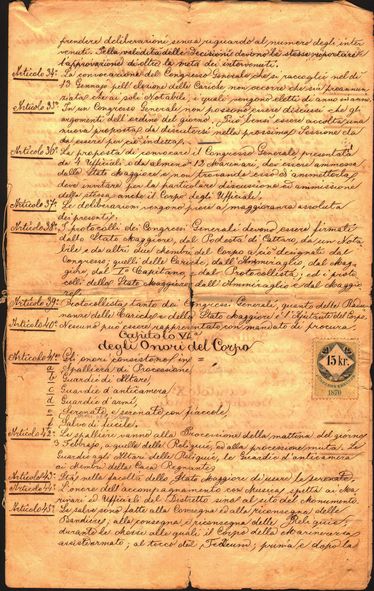 prendere deliberazioni senza riguardo al numero degli inter
venuti. Nella validità delle Decisioni devono le stesse riportare
l'approvazione di oltre la metà dei intervenuti.
Articolo 34: La convocazione del Congresso Generale, che si raccoglie nel dì
13. Gennajo pell'elezione delle Cariche non occorre che sia preannun
ziata che ai soli Notabili, i quali vengono eletti di anno in anno.
Articolo 35º In un Congresso Generale non possono essere discussi che gli
argomenti dell'ordine del giorno. Può bensì essere accolta una
nuova proposta da discutersi nella prossima Sessione da
essere per ciò indetta.
Articolo 36º La proposta di convocare il Congresso Generale presentata
da 4 Ufficiali o da almeno 12 Marinari, dev'essere ammessa
dallo Stato Maggiore, e non trovando esso di ammetterla,
deve invitare per la particolare discussione ed ammissione
della stessa anche il Corpo degli Ufficiali.
Articolo 37º Le deliberazioni vengono prese a maggioranza assoluta
dei presenti.
Articolo 38º I protocolli dei Congressi Generali devono essere firmati
dallo Stato Maggiore, dal Podestà di Cattaro, da un Nota
bile e da altri due membri del Corpo a ciò designati dal
Congresso; quelli delle Cariche, dall'Ammiraglio, dal Mag
gior, dal Iº Capitano e dal Protocollista; ed i proto
colli dello Stato Maggiore dall'Ammiraglio e dal Maggio
re.
Articolo 39: Protocollista tanto dei Congressi Generali, quanto delle Radu
nanze delle Cariche e dello Stato Maggiore è l'Ajutante del Corpo.
Articolo 40º Nessuno può essere rappresentato con mandato di procura.
Capitolo VIº
degli Onori del Corpo
Articolo 41º Gli onori consistono in =
a Spalliera di Processione
b Guardie di Altare
c Guardie d'anticamera
d Guardia d'armi
e Serenata, e serenata con fiaccole
f Salve di fucile.
Articolo 42º Le spalliere vanno alla Processione della mattina del giorno
3 Febbrajo, a quelle delle Reliquie, ed alla processione muta. Le
Guardie agli Altari delle Reliquie; le Guardie d'anticamera
ai Membri della Casa Regnante.
Articolo 43º Sta nelle facoltà dello Stato Maggiore di usare la serenata.
Articolo 44º L'onore dell'accompagnamento con Musica spetta ai Ma
rinari ed Ufficiali del Distretto sino al Monumento.
Articolo 45º Le salve sono fatte alla Consegna ed alla riconsegna delle
Bandiere; alla consegna e riconsegna delle Reliquie;
durante le Messe alle quali il Corpo della Marinerezza
assiste armato; al terzo del Tedeum; prima e dopo la
15 Kr.
1870